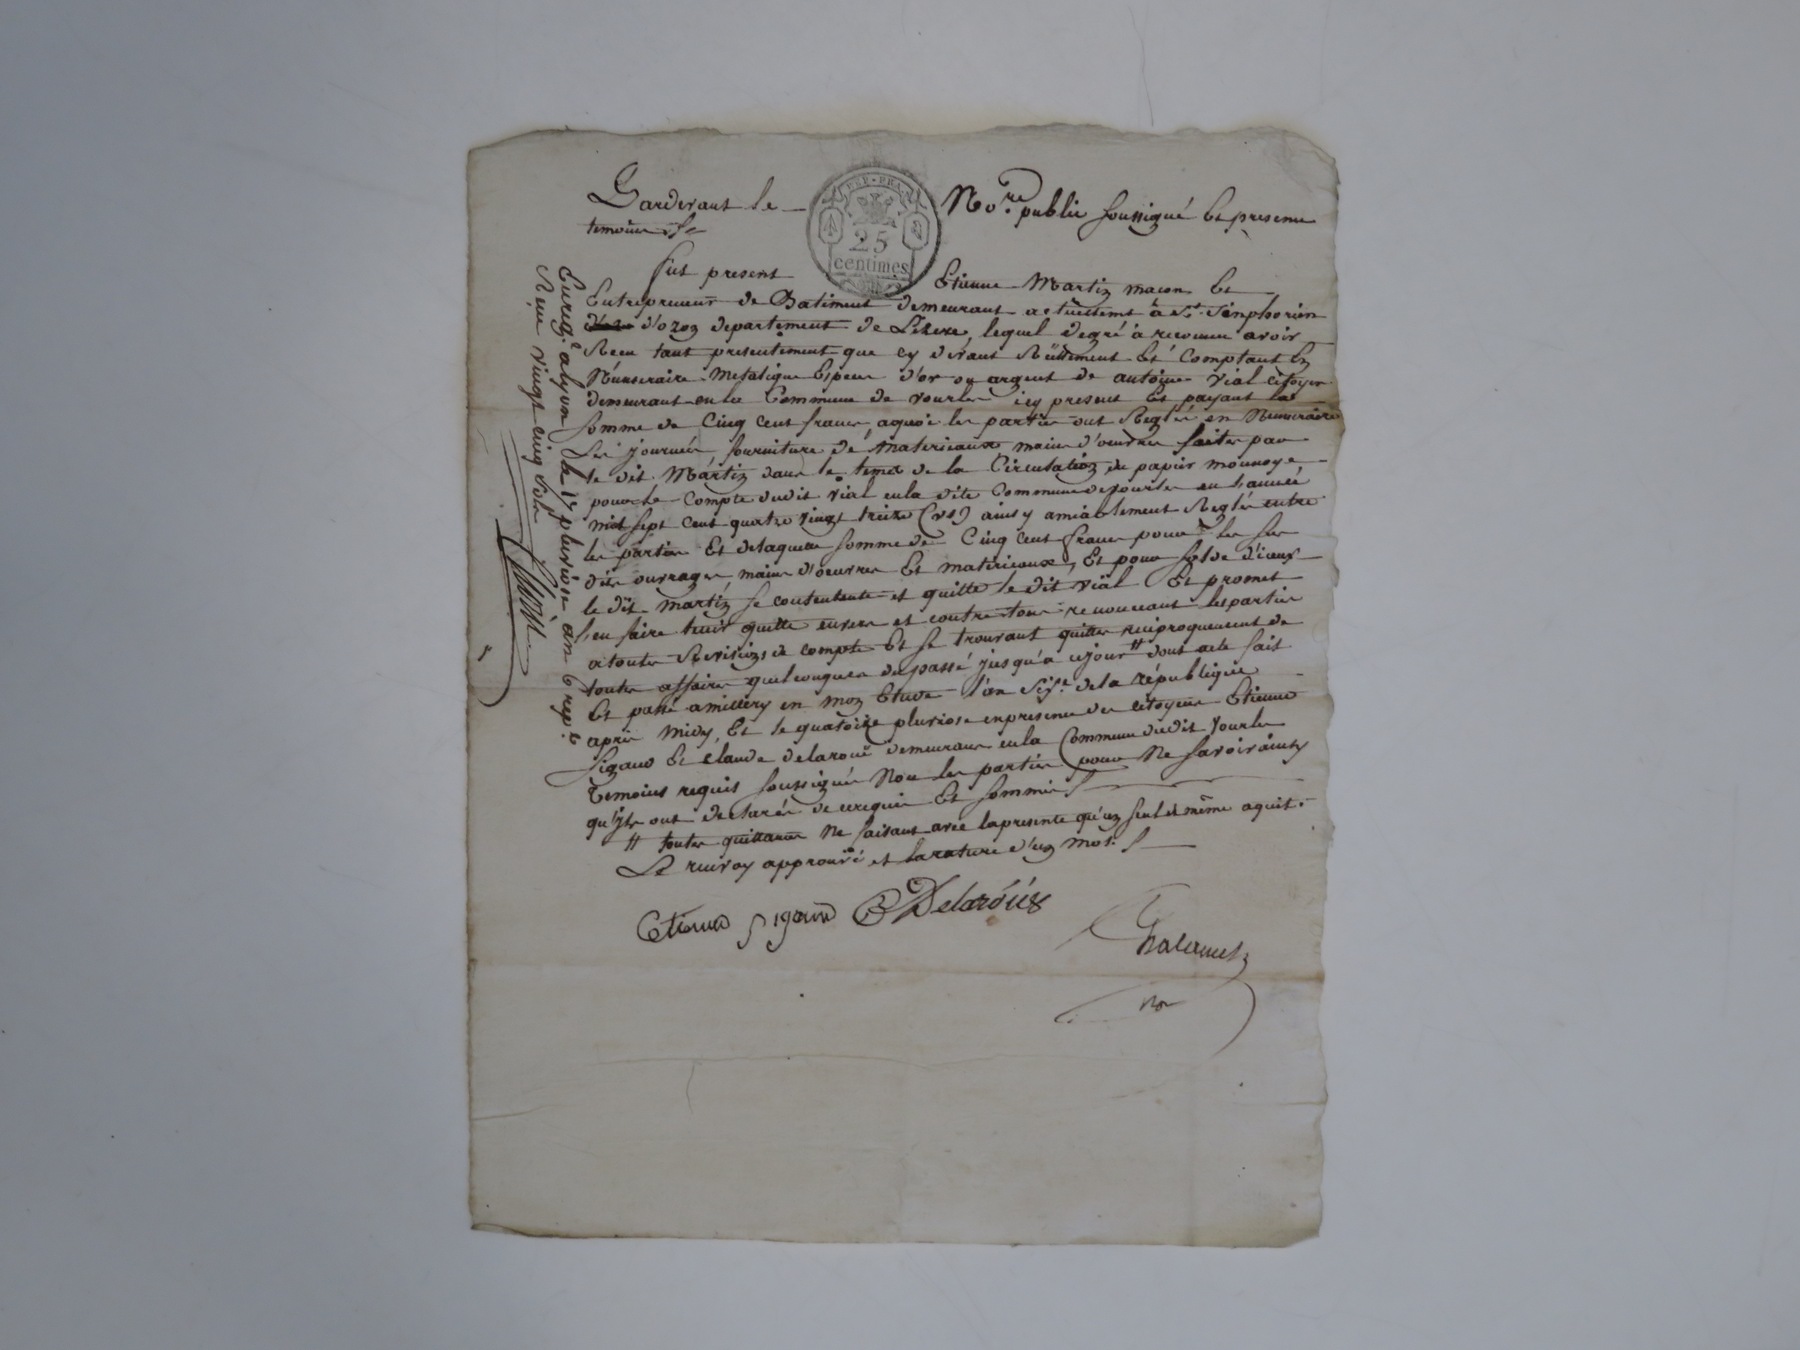 Pardevant le Nore. public soussigné Et presence
temoins
fut present Etienne Martin macon Et
Entrepreneur de Batiment demeurant actuellemt. à St. Sinphorien
d'ozon departement de L'izere, lequel degré à reconnu avoir
Receu tant presentement que cy devant Réellement Et Comptant En
Numeraire Metalique Espece d'or ou argent de antoine Vial citoyen
demeurant en la Commune de vourles icy present Et payant la
somme de Cinq Cent francs, aquoi les parties ont Reglés en Numeraire
Les journées, fourniture de materieaux mains d'oeuvres faites par
le dit Martin dans le tems de la Circulation du papier monnoye
pour le Compte dudit vial en la dite Commune de vourles en Lannée
mil sept Cent quatre vingt treize (vs) ainsy amiablement Reglés entre
les parties Et de laquelle somme de Cinq Cent francs pour les sus
dits ouvrages, mains d'oeuvres Et materieaux, Et pour solde d'iceux
le dit martin se contentente et quitte le dit vial Et promet
l'en faire tenir quitte envers et contre tous renonceant les parties
a toutes Revisions de compte Et se trouvant quittes reciproquement de
toutes affaires quelconques du passé jusqu'a ce jour # dont acte fait
Et passé a millery en mon Etude L'an Six.e de la république
après Midy, Et le quatorze pluviose en presence des citoyens Etienne
Sigaud Et claude delaroüe demeurans en la Commune dudit Vourles
Temoins requis soussignés Non les parties pour Ne savoir ainsy
qu'ils ont declarés de ce requis Et sommés
# toutes quittances Ne faisant avec la presente qu'un seul et même aquit.
Le renvoy approuvé et la rature d'un mot.
Etienne Sigaud Delaroüe
Chalamel
Nore
Enregé. a lyon Le 17 pluviose an 6 rep.
Reçu vingt cinq sols
REP. FRA.
25
centimes